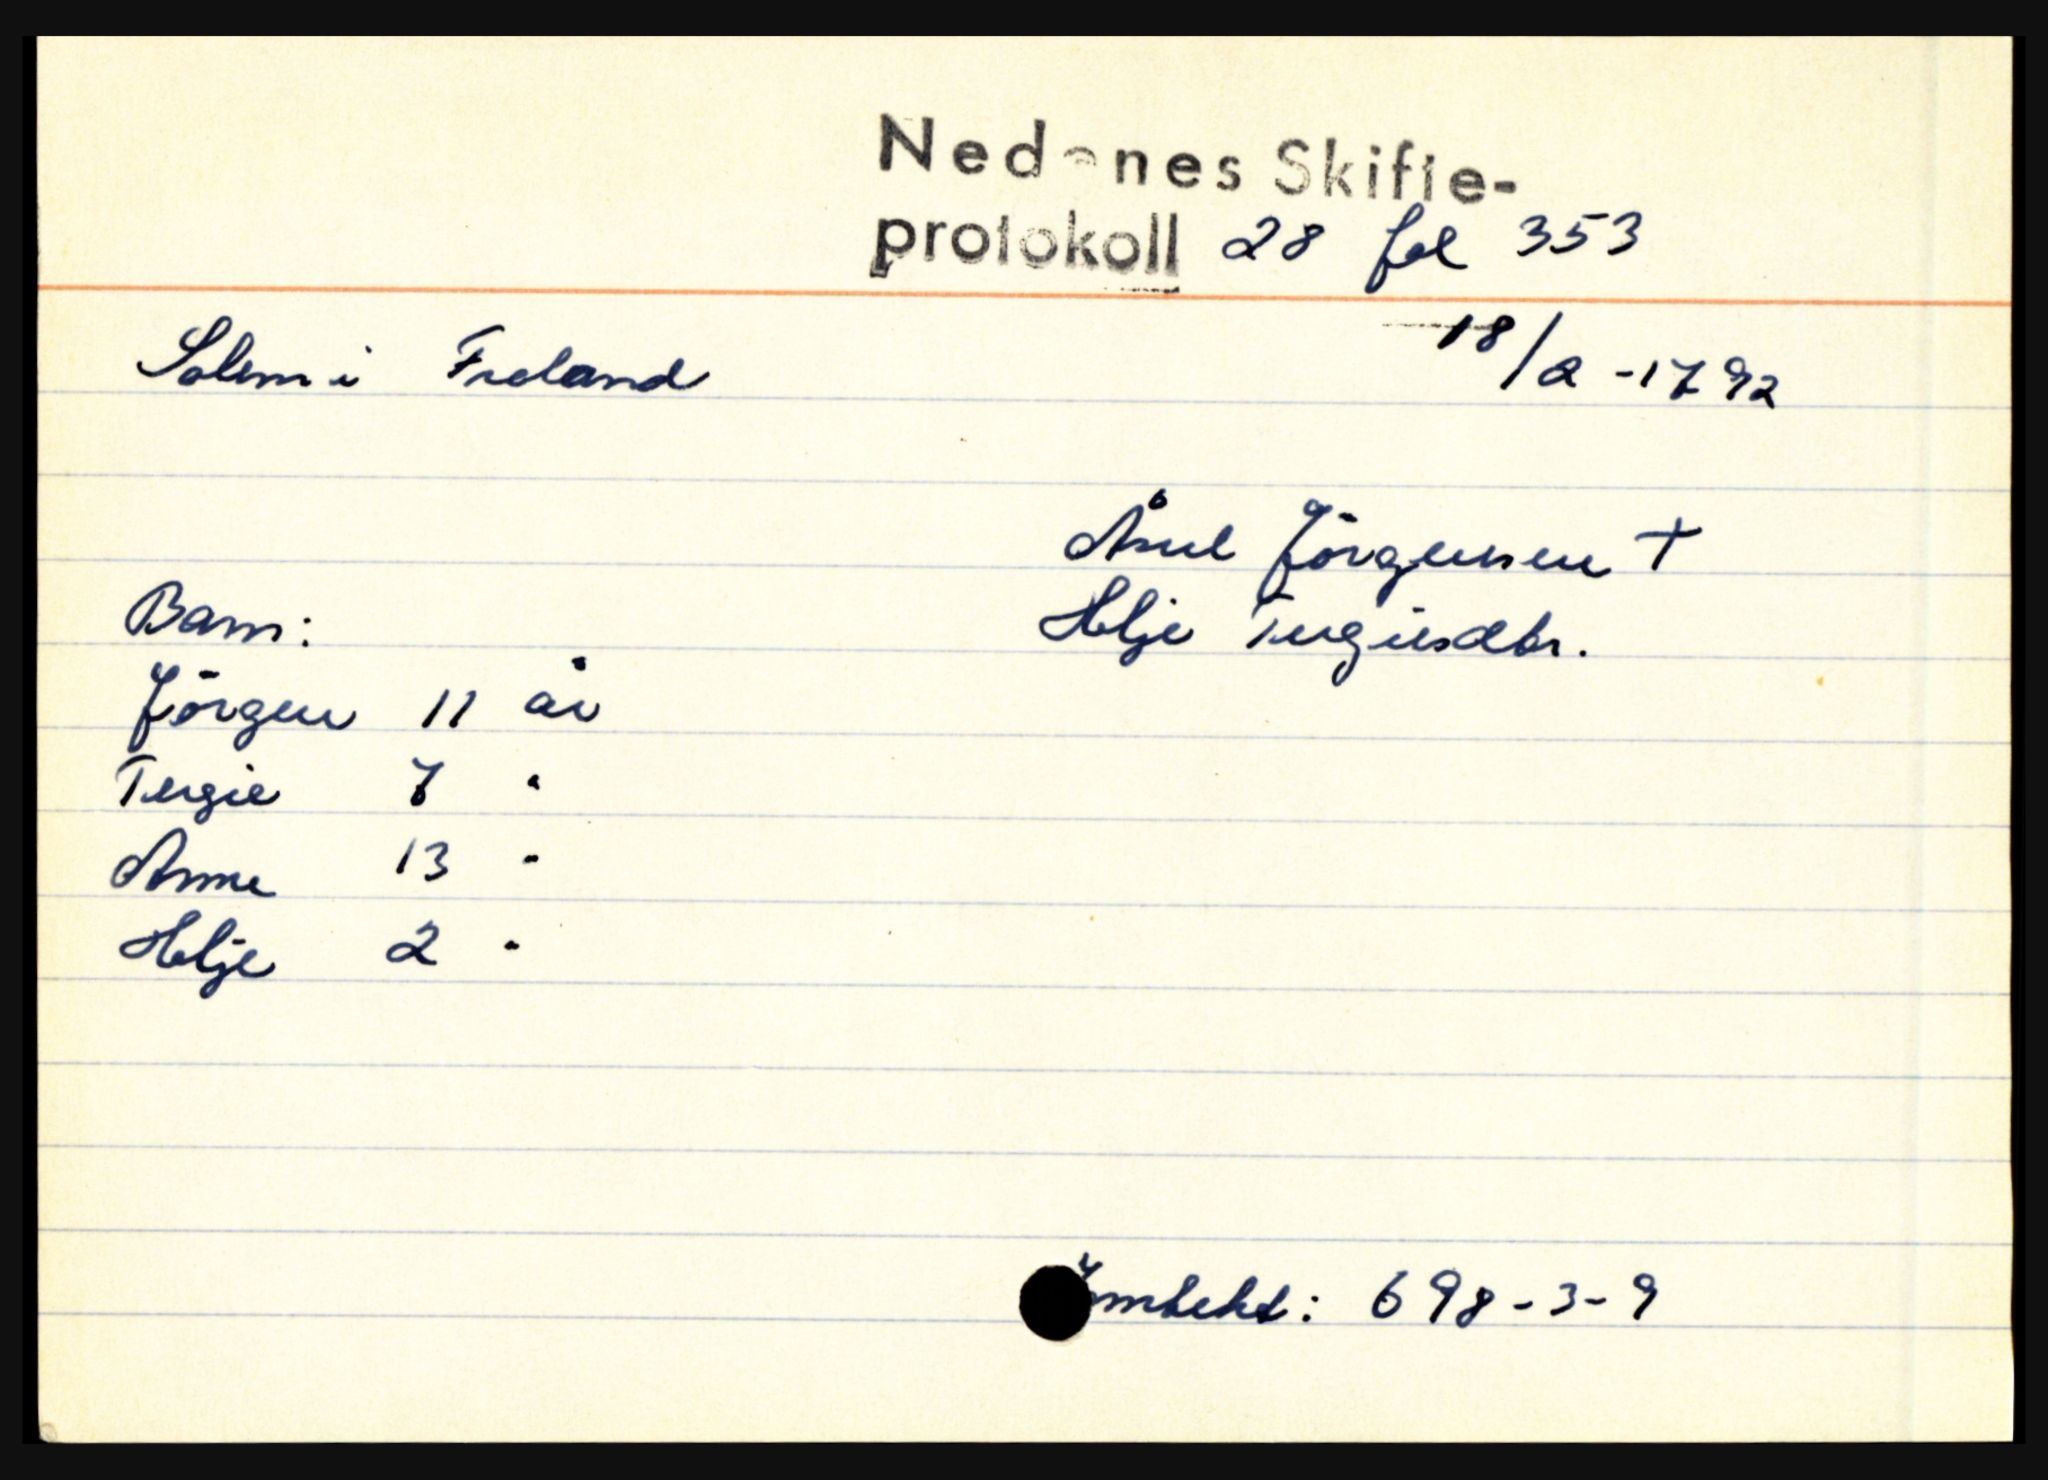 Nedenes Skifte-
protokoll 28 fol 353
18/2 - 1792
Solem i Froland
Åsul Jörgensen +
Helje Tergiesdtr.
Barn:
Jörgen 11 år
Tergie 7 "
Anne 13 "
Helje 2 "
Inntekt: 698-3-9